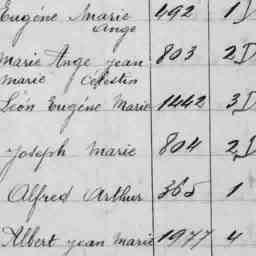 Eugéne Marie 492 1 D
Ange
Marie Ange Jean 803 2 D
Marie Célestin
Léon Eugéne Marie 1442 3 D
Joseph Marie 804 2 D
Alfred Arthur 365 1
Albert Jean Marie 1977 4